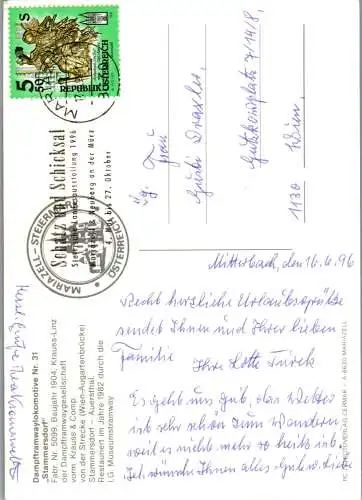 5 S
REPUBLIK
ÖSTERREICH
MARIAZELL
Schatz und Schicksal
Steirische Landesausstellung 1996
Mariazell & Neuberg an der Mürz
4. Mai bis 27. Oktober
MARIAZELL-STEIERMARK
ÖSTERREICH
Dampftramwaylokomotive Nr. 31
"Stammersdorf"
Fabr. Nr. 5099, Baujahr 1904, Krauss-Linz
der Dampftramwaygesellschaft
vorm. Krauss & Comp.
von der Strecke (Wien-Augartenbrücke)
Stammersdorf - Auersthal.
Restauriert im Jahre 1982 durch die
I.G. Museumstramway
Frau
Gusti Draxler,
7/14/8,
1130 Wien,
Mitterbach, den 16.6.96
Recht herzliche Urlaubsgrüße
sendet Ihnen und Ihrer lieben
Familie
Ihre Lotte Türck
Es geht uns gut, das Wetter
ist sehr schön zum Wandern
weil es nicht mehr so heiß ist.
Jetzt wünschen Ihnen alles Gute u. liebe
A-8630 MARIAZELL